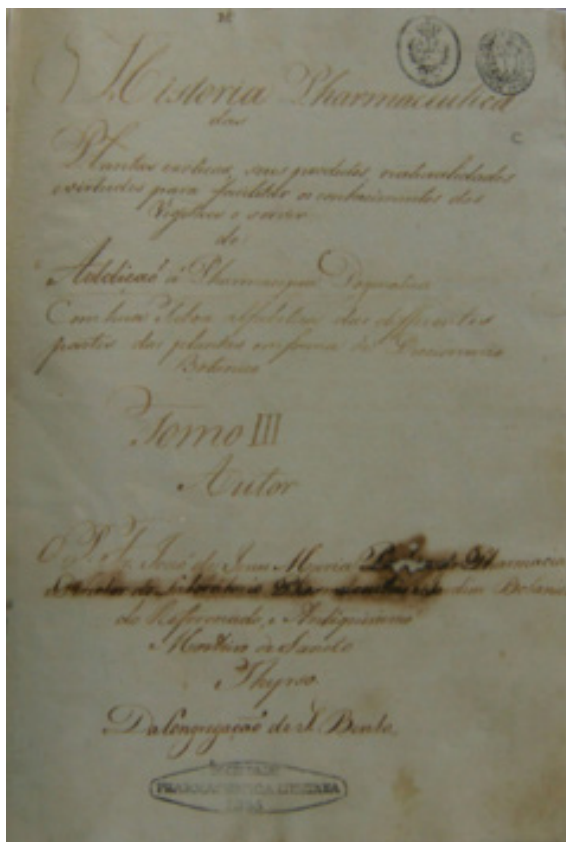 Historia Pharmaceutica
das
Plantas exoticas, seus productos, naturalidades
e virtudes para facilitar o conhecimento dos
Vegetaes e servir
de
Addicaõ á Pharmacopea Dogmatica
Com huma Taboa alfabetica das differentes
partes das plantas conforme o Diccionario
Botanico
Tomo III
Autor
O P. F. João de Jesus Maria Pharmacia
Botanico
do Reformado, e Antiquissimo
Mosteiro de Sancto
Thyrso
Da Congregação de S. Bento.
SOCIEDADE
PHARMACEUTICA LUSITANA
1835